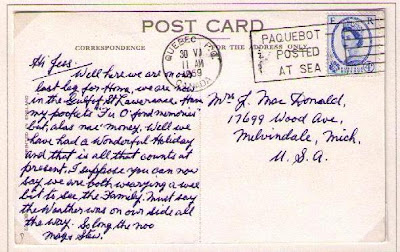 POST CARD
CORRESPONDENCE
QUEBEC, P.Q.
30 VI
11 AM
1959
CANADA
PAQUEBOT
POSTED
AT SEA
E R
Hi Jess.
Well here we are on our
last leg for Home, we are now
in the Gulf of St Lawerance. Have
my pockets "Fu O' fond memories"
but, alas nae money. Well we
have had a Wonderful Holiday
and that is all that counts at
present. I suppose you can now
say we are both wearying a wee
bit to see the Family. Must say
the Weather was on our side all
the way. So long the noo
Mag & Stew.
Mrs J. Mac Donald,
17699 Wood Ave,
Melvindale, Mich,
U. S. A.